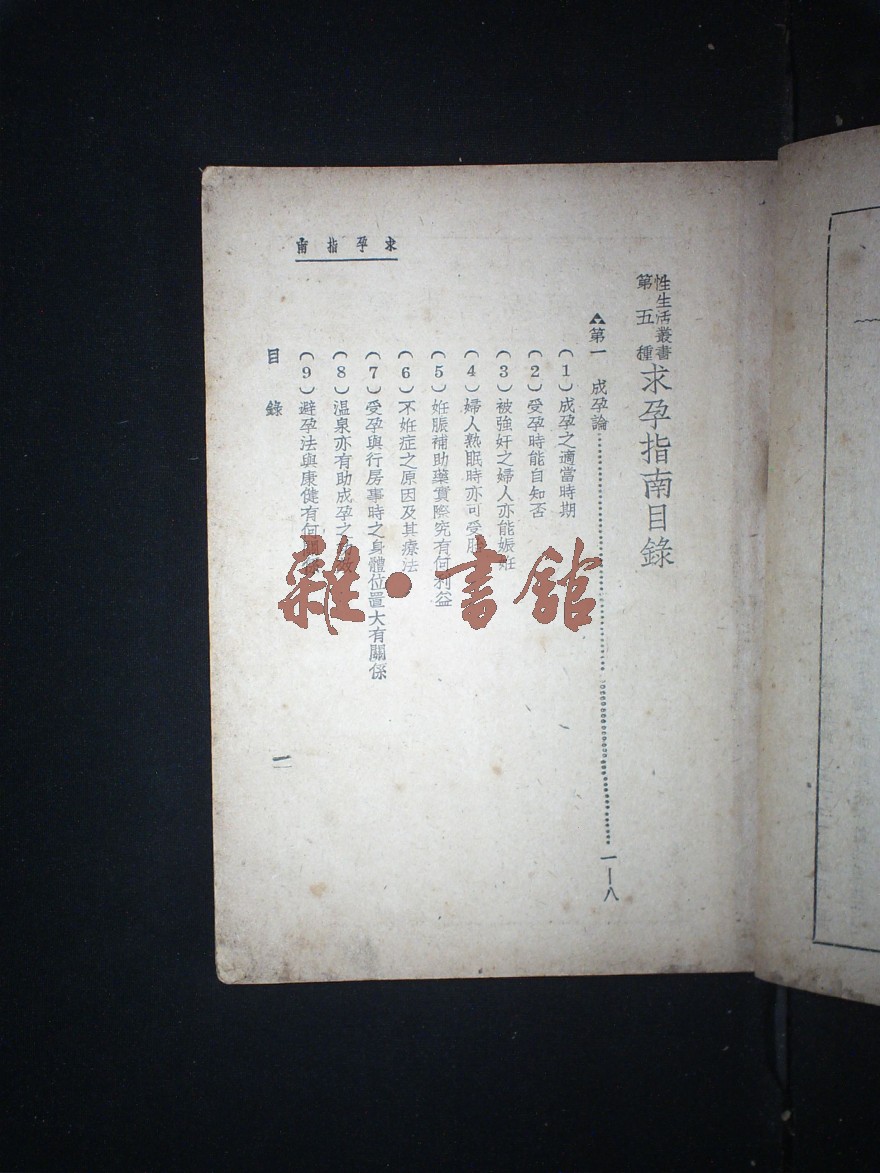 求孕指南
性生活叢書
第五種
求孕指南目錄
第一 成孕論 一—八
(1)成孕之適當時期
(2)受孕時能自知否
(3)被強奸之婦人亦能娠妊
(4)婦人熟眠時亦可受胎
(5)妊脤補助藥實際究有何利益
(6)不妊症之原因及其療法
(7)受孕與行房事時之身體位置大有關係
(8)温泉亦有助成孕之
(9)避孕法與康健有何關係
目錄
一
雜·書館